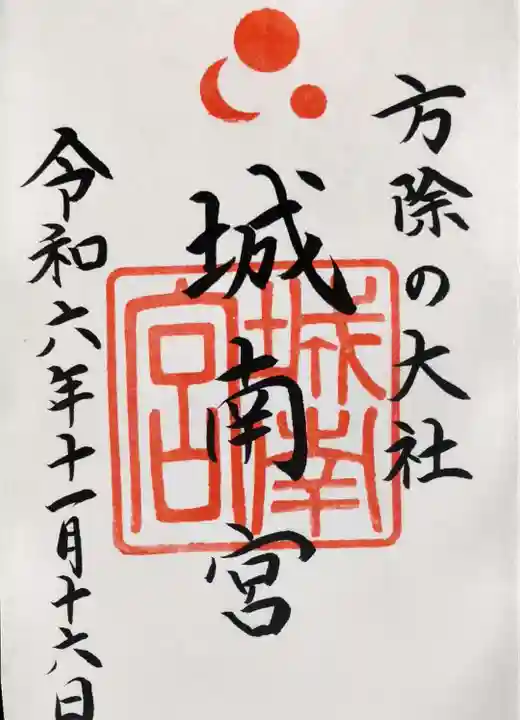 方除の大社
城南宮
城南宮
令和六年十一月十六日